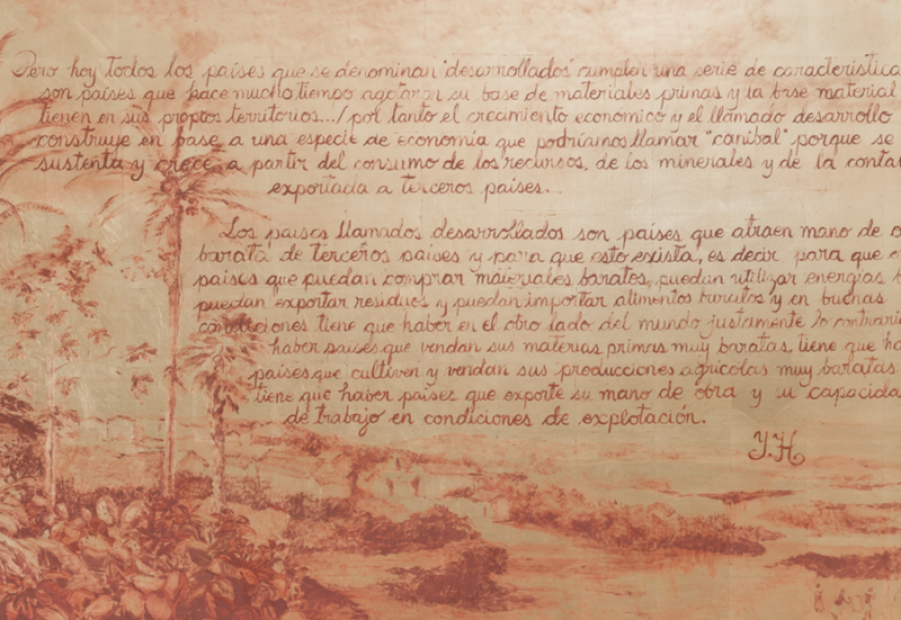 Pero hoy todos los países que se denominan "desarrollados" cumplen una serie de caracteristica
son países que hace mucho tiempo agotaron su base de materiales primas y la base material
tienen en sus propios territorios.../ por tanto el crecimiento economico y el llamado desarrollo
construye en base a una especie de economía que podríamos llamar "canibal" porque se
sustenta y crece a partir del consumo de los recursos, de los minerales y de la conta
exportada a terceros países...
Los países llamados desarrollados son países que atraen mano de o
barata de terceros países y para que esto exista, es decir para que e
países que puedan comprar materiales baratos, puedan utilizar energías b
puedan exportar residuos y puedan importar alimentos baratos y en buenas
condiciones tiene que haber en el otro lado del mundo justamente lo contrari
haber países que vendan sus materias primas muy baratas, tiene que ha
países que cultiven y vendan sus producciones agrícolas muy baratas
tiene que haber países que exporte su mano de obra y su capacida
de trabajo en condiciones de explotación.
Y.H